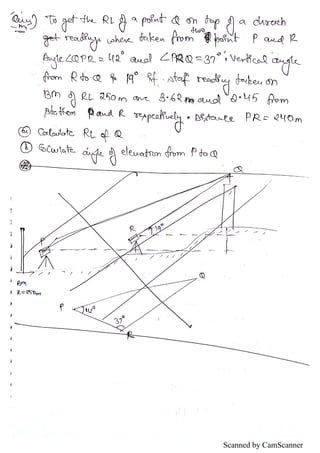 Ques) To get the RL of a point Q on top of a church
get readings where taken from two point P and R
Angle ∠QPR = 42° and ∠PRQ = 37°; vertical angle
from R to Q is 19° if staff reading taken on
BM of RL 250m are 3.62m and 2.45 from
station P and R respectively. Distance PR = 240m
(a) Calculate RL of Q
(b) Calculate angle of elevation from P to Q
Q
R
19°
P
BM
R = 250m
Q
P
42°
37°
R
Scanned by CamScanner